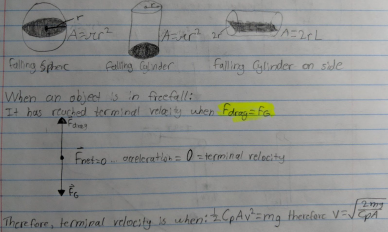 r A=πr² A=πr² 2r A=2rL
Falling Sphere Falling Cylinder Falling Cylinder on side
When an object is in freefall:
It has reached terminal velocity when F_drag=F_G
F_drag
F_net=0 acceleration = 0 = terminal velocity
F_G
Therefore, terminal velocity is when: ½CρAv²=mg therefore V=√(2mg/CρA)